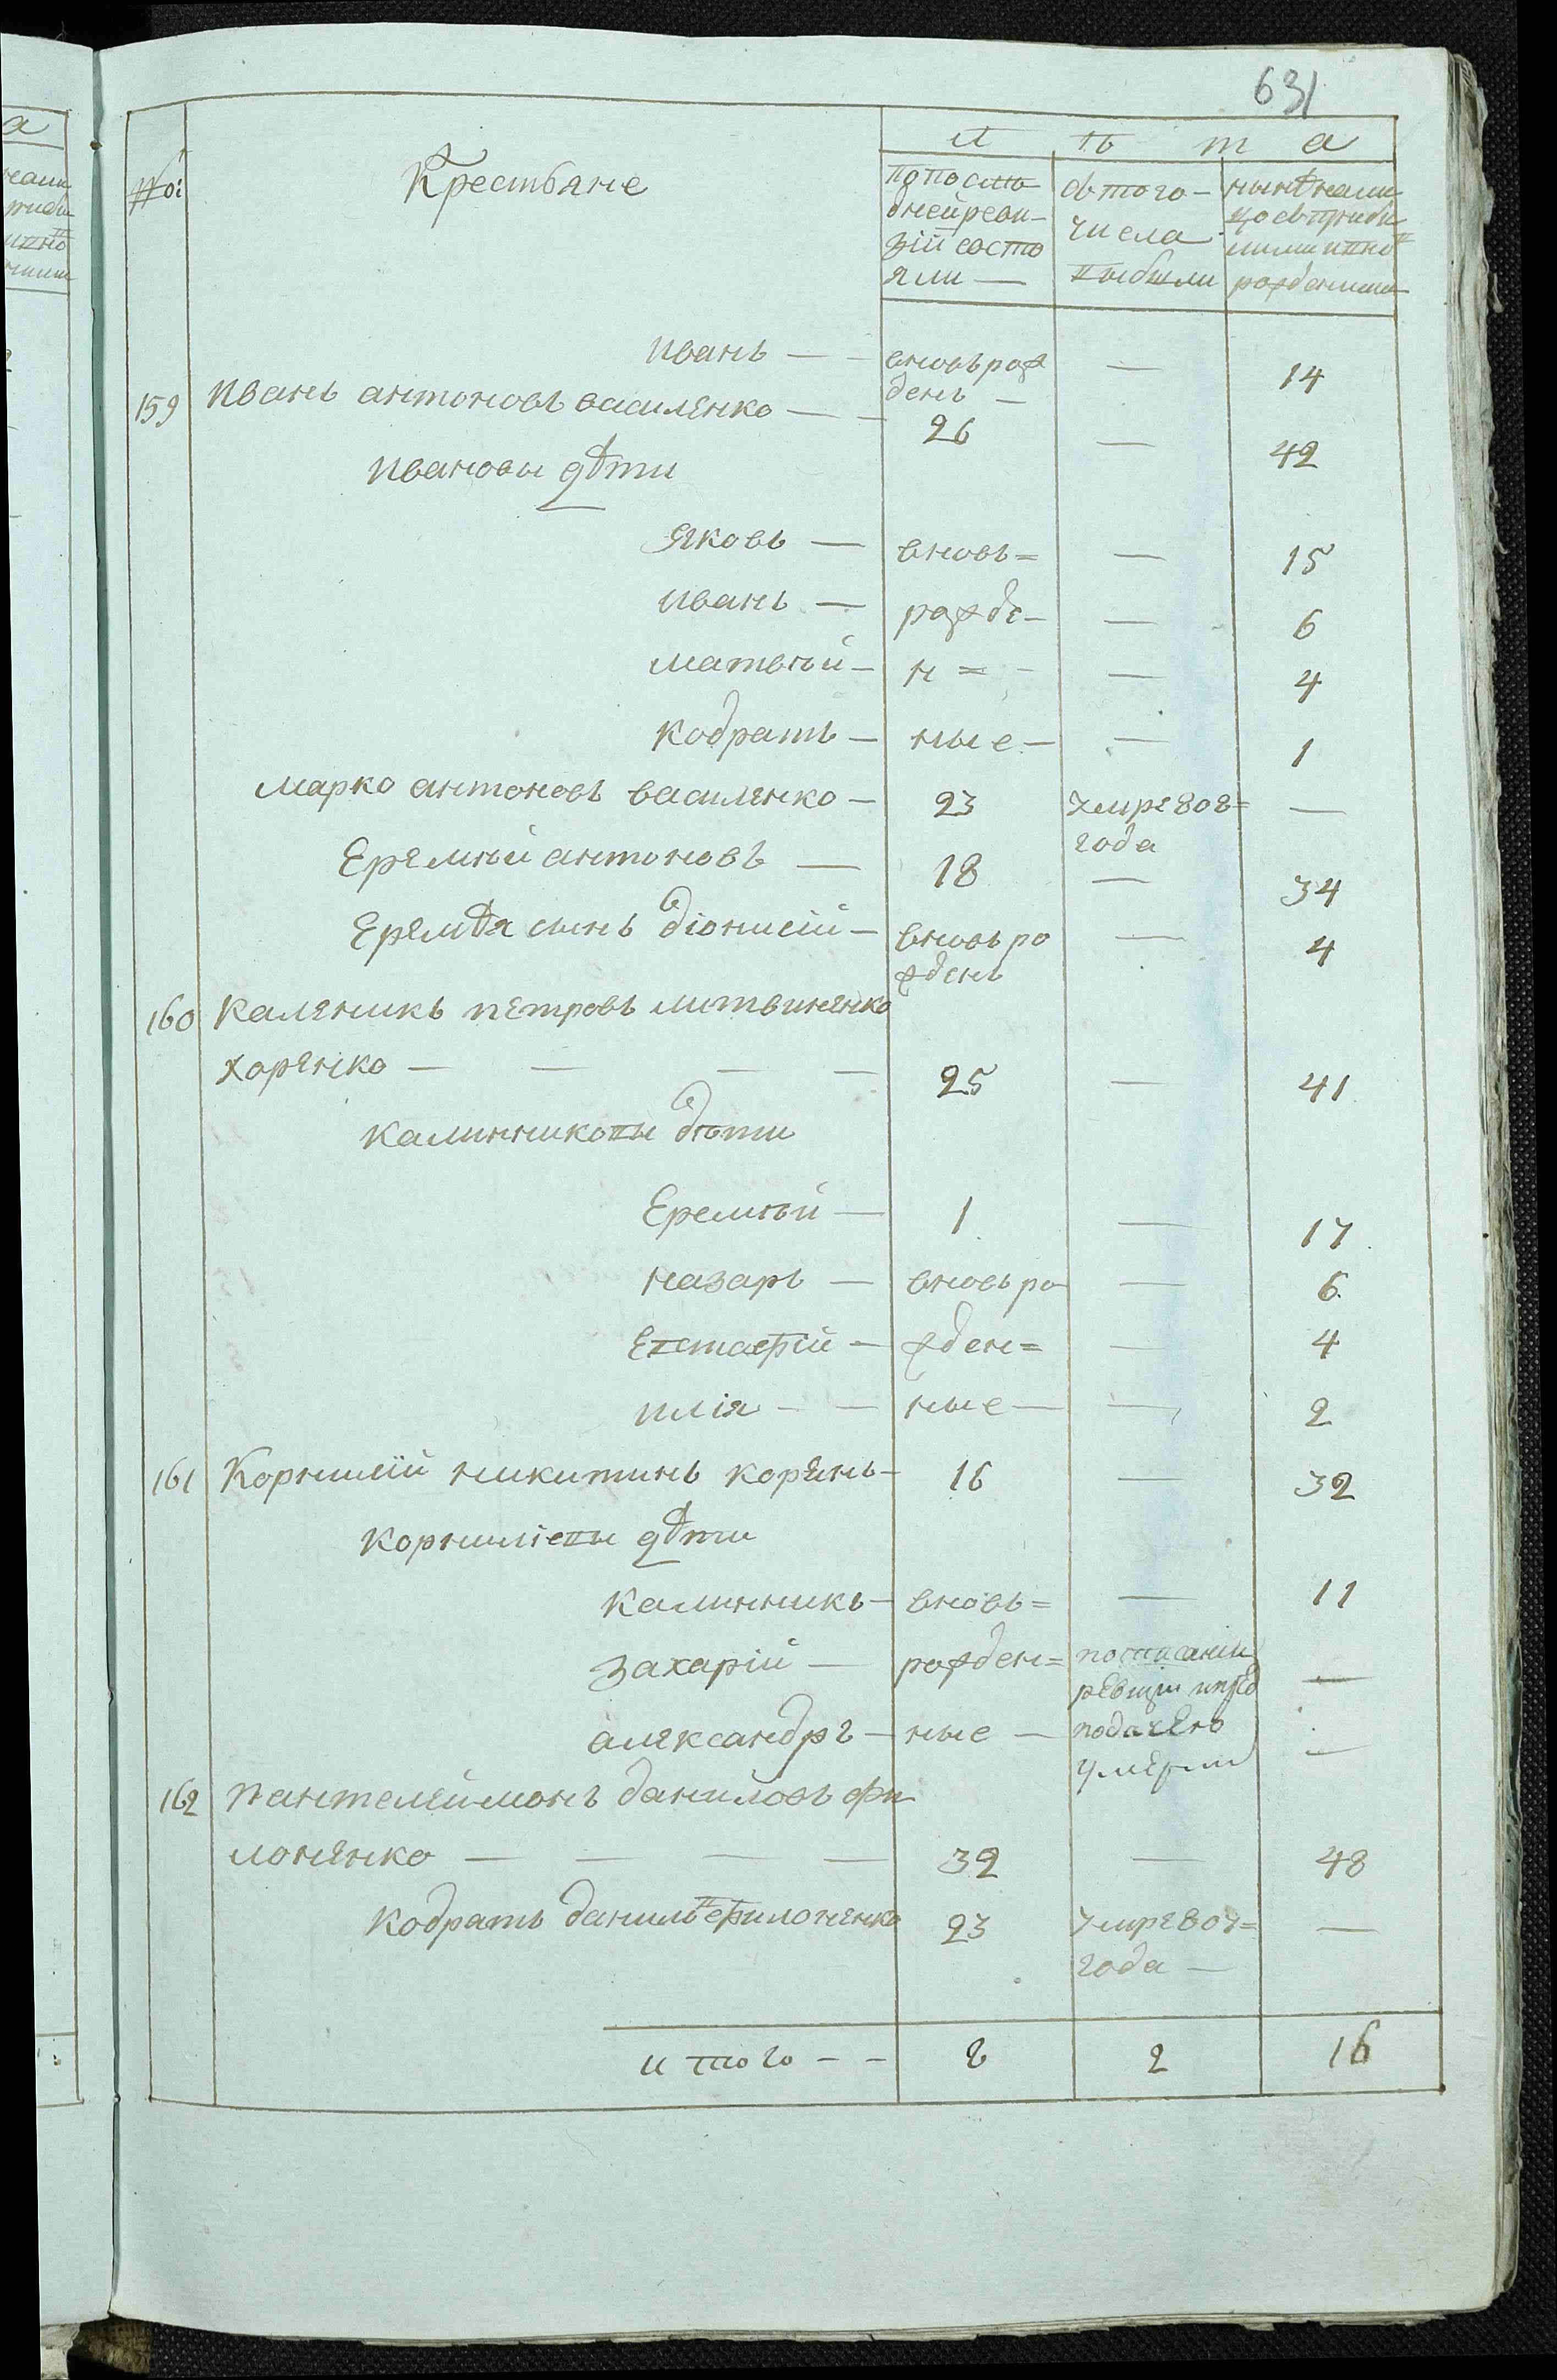 631
№ Крестьяне
лѣта
по после
дней реви-
зїи состо
яли —
съ того —
числа
выбыли
нынѣ нали
цо съ прибы
лыми и вновь
рожденными
Иванъ — — вновь рож
денъ — — 14
159 Иванъ антоновъ василенко — — 26 — 42
Ивановы дѣти
Яковъ — вновь= — 15
Иванъ — рожде- — 6
матвѣй — н= — 4
Кодратъ — ные — — 1
Марко антоновъ василенко — 23 умре 808= —
года
Еремѣй антоновъ — 18 — 34
Еремѣя сынъ дїонисїй — вновь ро — 4
жденъ
160 Каленикъ петровъ литвиненко
хоренко — — — — 25 — 41
калинниковы дѣти
Еремѣй — 1 — 17
назаръ — вновь ро — 6
Евстафїй — жден= — 4
илїя — — ные — — 2
161 Корнилїй никитинъ корень — 16 — 32
корнилїевы дѣти
калинникъ — вновь= — 11
захарїй — рожден= по писанїи —
ревизїи и пред
александръ — ные — подачею —
умерли
162 Пантелеймонъ даниловъ фи
лоненко — — — — 32 — 48
Кодратъ данилевъ филоненко 23 умре 807= —
года —
итого — — 8 2 16